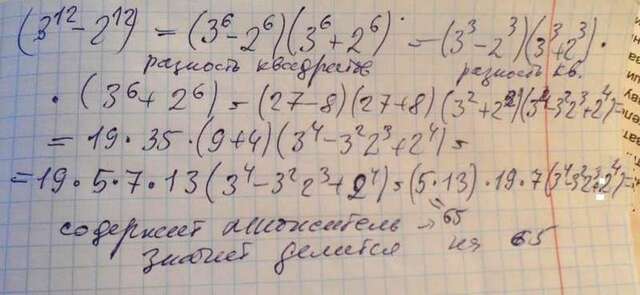 (3¹² - 2¹²) = (3⁶ - 2⁶)(3⁶ + 2⁶) = (3³ - 2³)(3³ + 2³) ·
разность квадратов разность кв.
· (3⁶ + 2⁶) = (27 - 8)(27 + 8)(3² + 2²)(3⁴ - 3²2³ + 2⁴) =
= 19 · 35 · (9 + 4)(3⁴ - 3²2³ + 2⁴) =
= 19 · 5 · 7 · 13 (3⁴ - 3²2³ + 2⁴) = (5 · 13) · 19 · 7 (3⁴ - 3²2³ + 2⁴) =
содержит множитель → 65
значит делится на 65